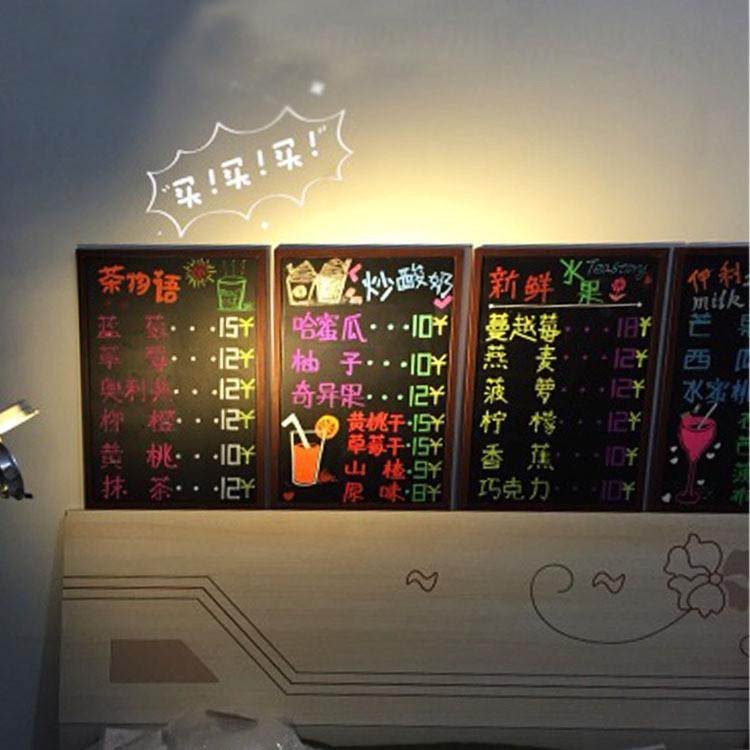 "买！买！买！"
茶物语
蓝 莓···15¥
草 莓···12¥
奥利奥···12¥
柳 橙···12¥
黄 桃···10¥
抹 茶···12¥
炒酸奶
哈蜜瓜···10¥
柚 子···10¥
奇异果···12¥
黄桃干·15¥
草莓干·15¥
山 楂·9¥
原 味·8¥
新鲜水果
Teastory
蔓越莓···18¥
燕 麦···12¥
菠 萝···12¥
柠 檬···12¥
香 蕉···10¥
巧克力···10¥
伊利
milk
芒
西 瓜
水蜜桃